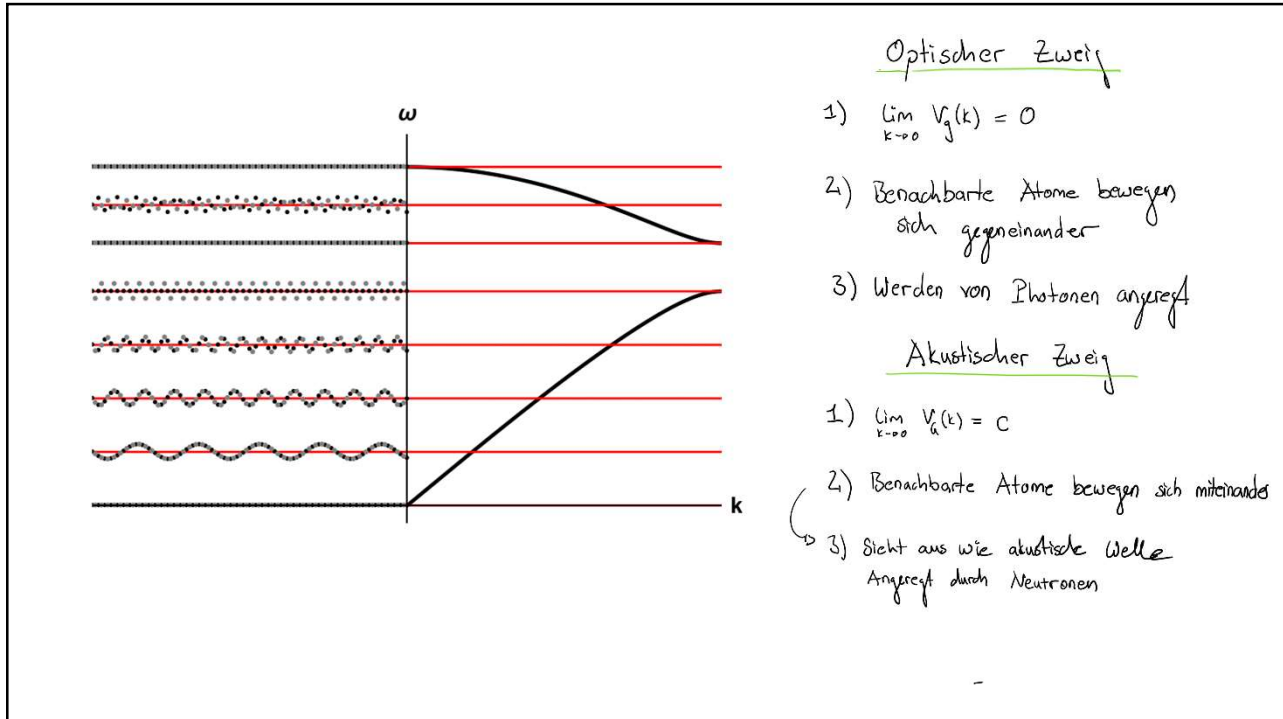 ω
k
Optischer Zweig
1) lim k→0 Vg(k) = 0
2) Benachbarte Atome bewegen
sich gegeneinander
3) Werden von Photonen angeregt
Akustischer Zweig
1) lim k→0 VG(k) = C
2) Benachbarte Atome bewegen sich miteinander
3) Sieht aus wie akustische Welle
Angeregt durch Neutronen